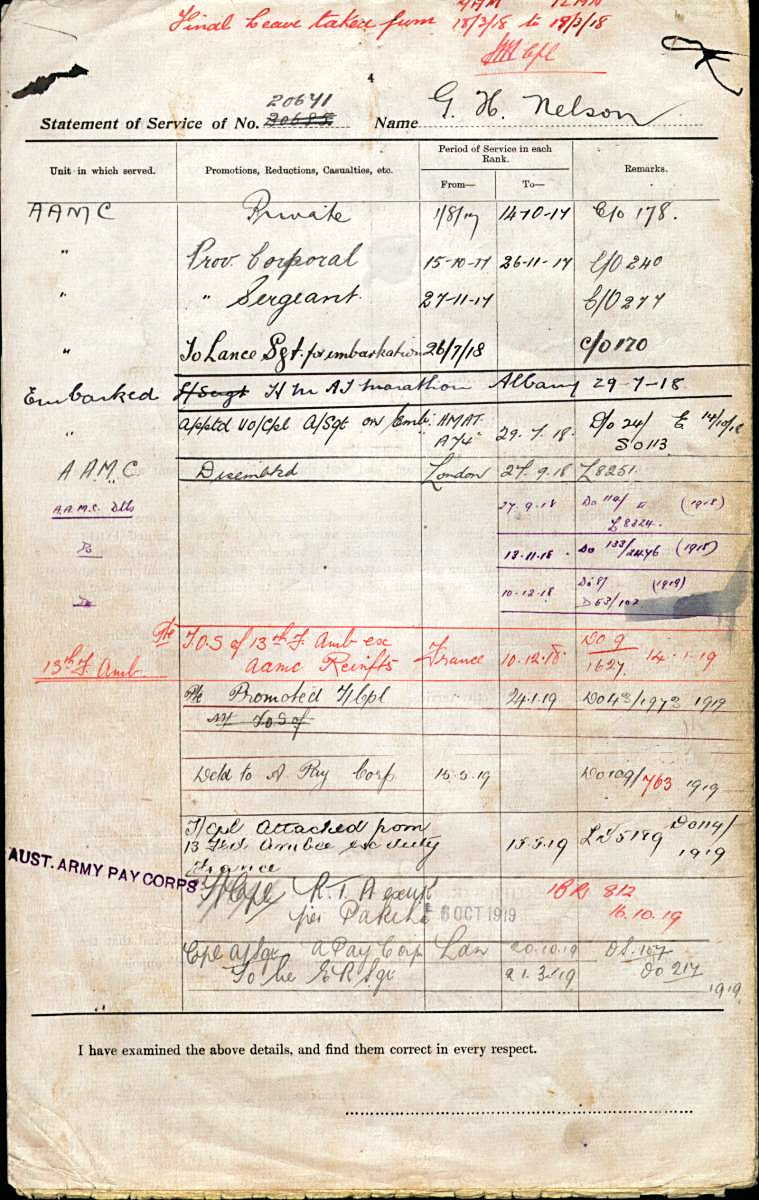 9AM 12 AM
Final Leave taken from 18/3/18 to 19/3/18
Cpl
4
20641
Statement of Service of No. 20685 Name G. H. Nelson
Unit in which served. Promotions, Reductions, Casualties, etc. Period of Service in each Rank. Remarks.
From— To—
AAMC Private 1/8/17 14-10-17 C/o 178.
" Prov. Corporal 15-10-17 26-11-17 C/O 240
" " Sergeant 27-11-17 C/O 277
" To Lance Sgt. for embarkation 26/7/18 C/O 170
Embarked L/Sergt H M A T Marathon Albany 29-7-18
" Apptd VO/Cpl A/Sgt on Emb: HMAT A74 29.7.18. Do 24/ E 14/10/18
S0113
A A M C Disembkd London 27.9.18 L8251
A.A.M.C. Dtls 27.9.18 Do 110/ (1918)
L8224.
D 13.11.18. Do 133/2446 (1918)
D 10.12.18 Do 9/ (1919)
D53/102
13th F. Amb. Pte T.O.S of 13th F. Amb ex France 10.12.18. DO 9 14.1.19
AAMC Reinfts 1627
Pte Promoted T/Cpl 24.1.19 Do 43/1973 1919
Detd to A Pay Corp 15.5.19 Do 109/763 1919
T/Cpl Attached from
13 Fld Ambce ex duty 15.5.19 LD5189 Do 114/
France 1919
AUST. ARMY PAY CORPS
T/Cpl R.T.A ex UK 1BR 812
per Pakeha 6 OCT 1919 16.10.19
Cpl A/Sgt A Pay Corp Lon 20.10.19 DS.157
To be E R Sgt 21.3.19 Do 217
1919
I have examined the above details, and find them correct in every respect.